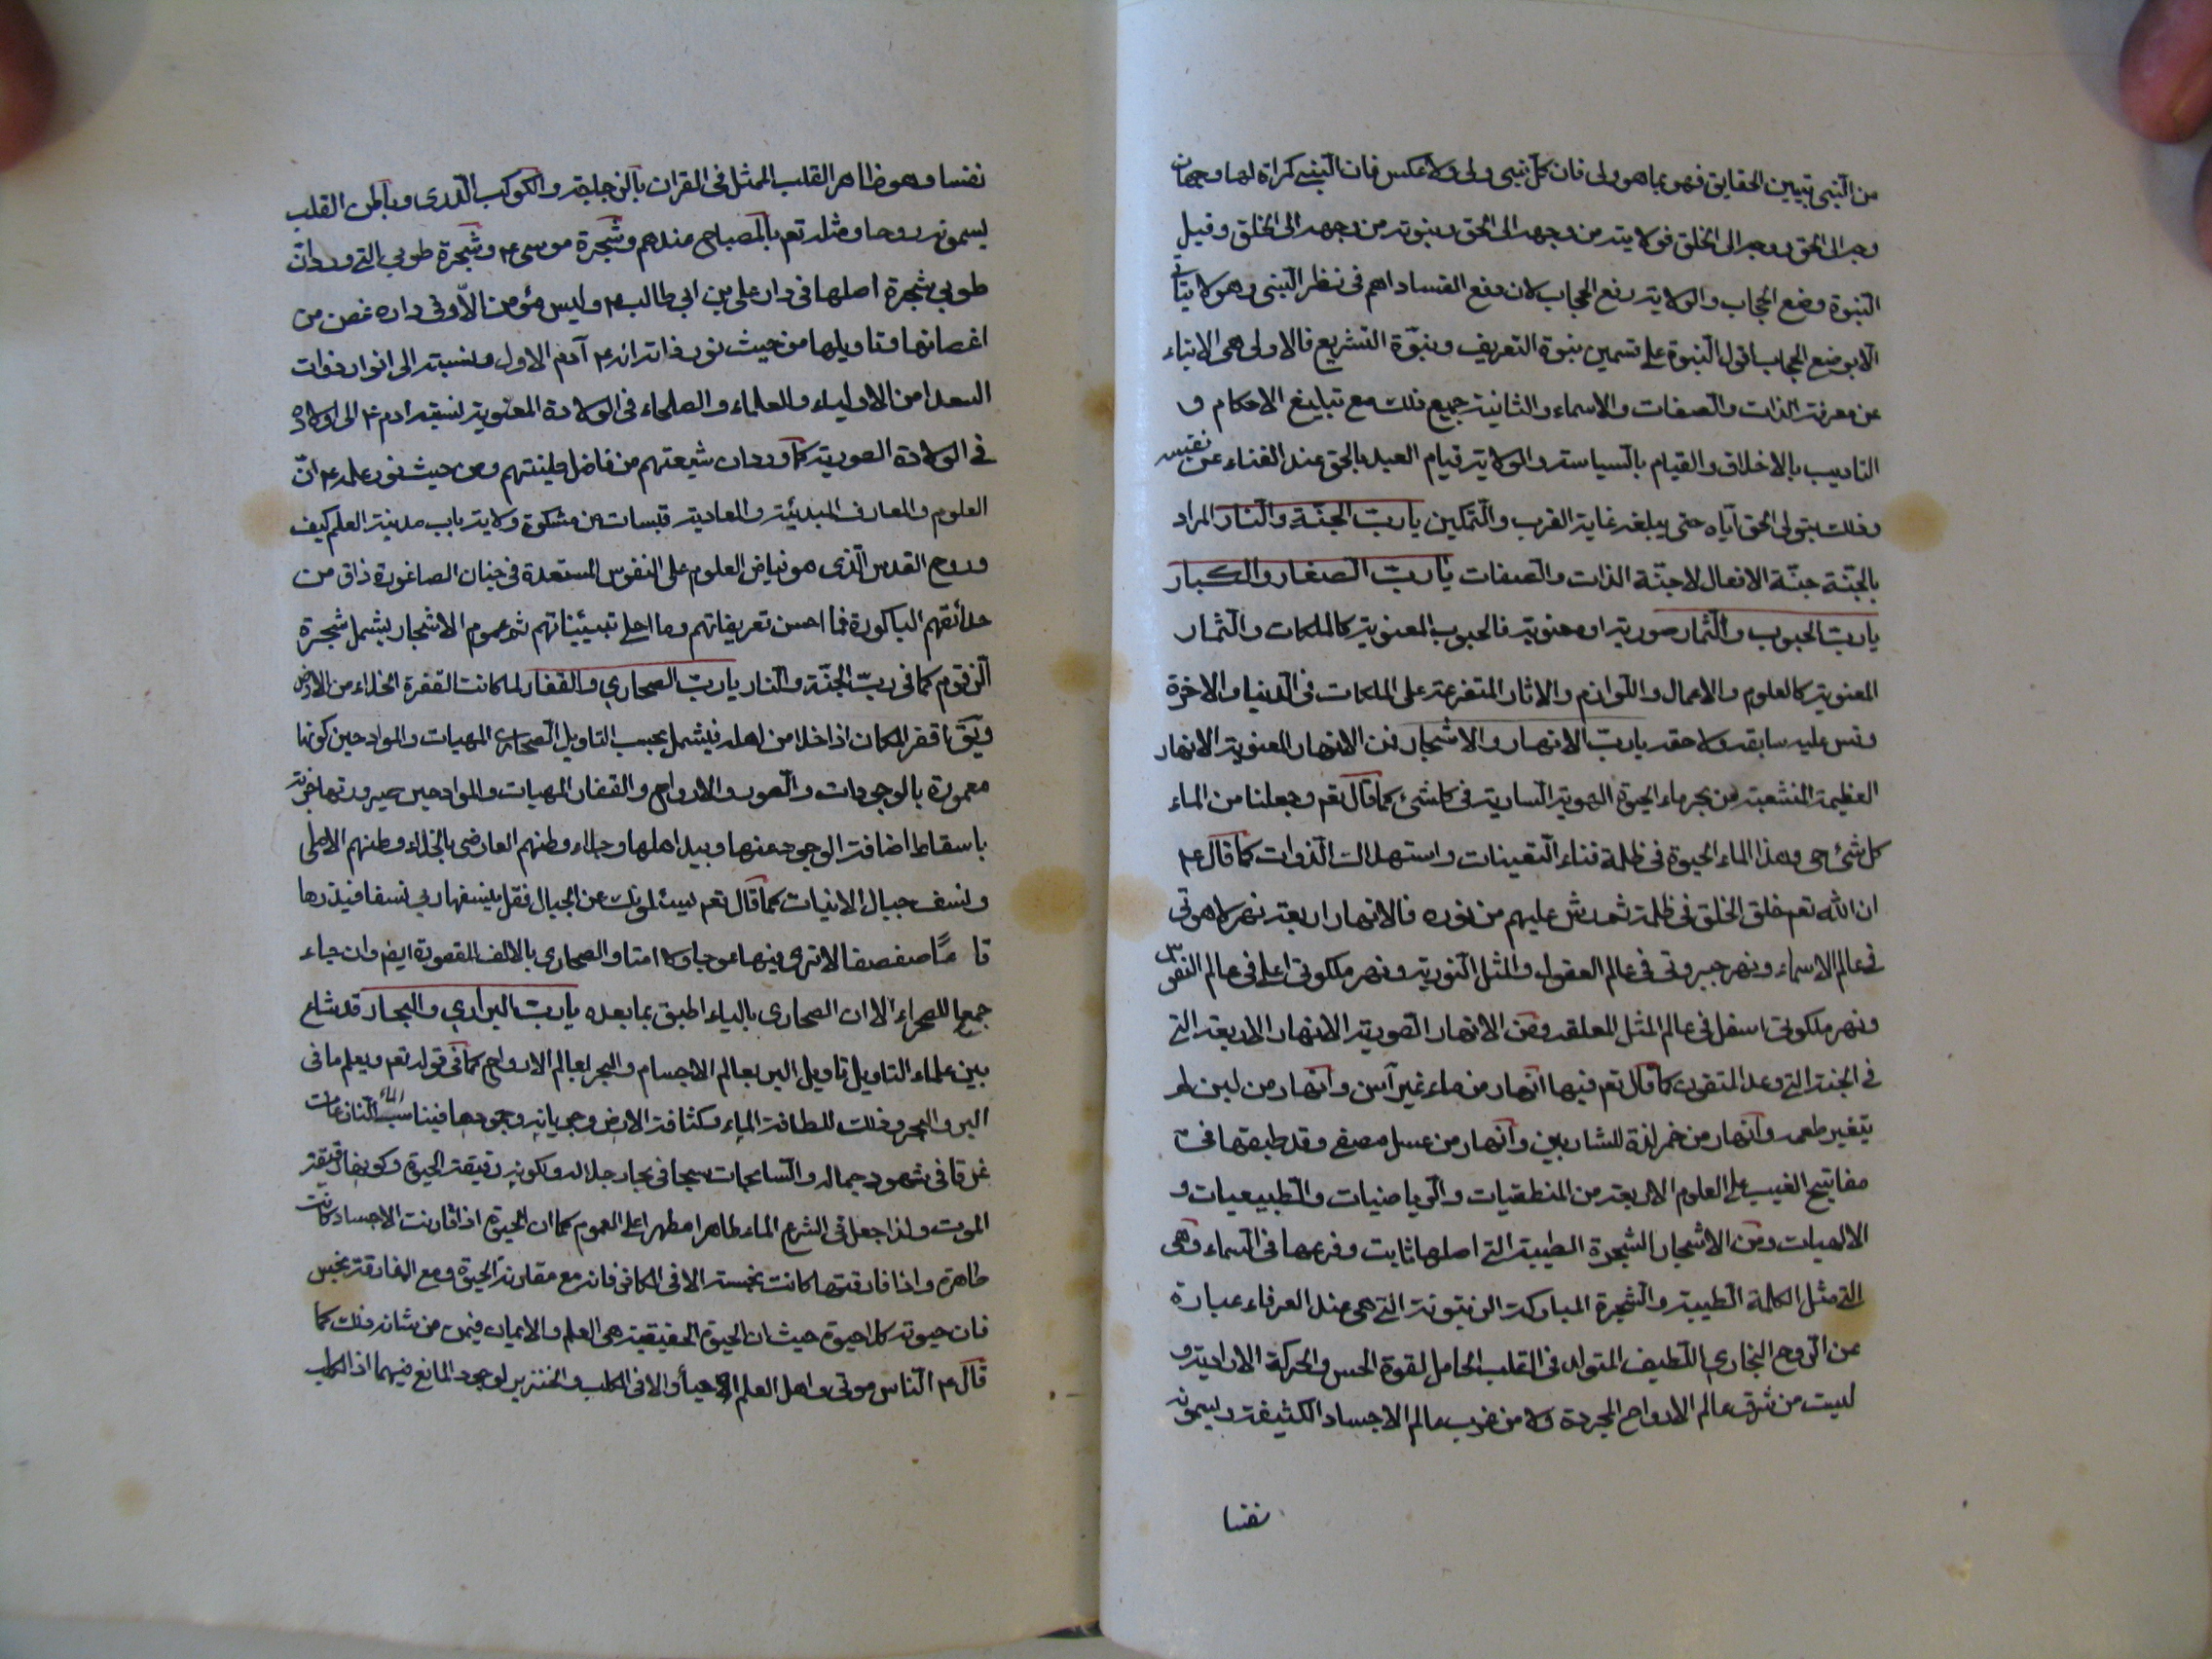 من النبى تبيين الحقايق فهو بما هو ولى فان كل نبى ولى ولا عكس فان النبى كمراة لها وجهان
وجه الى الحق ووجه الى الخلق فولايته من وجهه الى الحق ونبوته من وجهه الى الخلق وقيل
النبوة وضع الحجاب والولاية رفع الحجاب لان دفع الفساد اهم فى نظر النبى وهو لا يتاتى
الا بوضع الحجاب اقول النبوة على قسمين نبوة التعريف ونبوة التشريع فالاولى هى الانباء
عن معرفة الذات والصفات والاسماء والثانية جميع ذلك مع تبليغ الاحكام و
التاديب بالاخلاق والقيام بالسياسة والولاية قيام العبد بالحق عند الفناء عن نفسه
وذلك بتولى الحق اياه حتى يبلغه غاية القرب والتمكين يا رب الجنة والنار المراد
بالجنة جنة الافعال لا جنة الذات والصفات يا رب الصغار والكبار
يا رب الحبوب والثمار صورية او معنوية فالحبوب المعنوية كالملكات والثمار
المعنوية كالعلوم والاعمال واللوازم والاثار المتفرعة على الملكات فى الدنيا والاخرة
وقس عليه سابقه ولاحقه يا رب الانهار والاشجار فمن الانهار المعنوية الانهار
العظيمة المنشعبة من بحر ماء الحيوة الهوية السارية فى كل شئ كما قال تعم وجعلنا من الماء
كل شئ حى وهذا الماء الحيوة فى ظلمة فناء التعينات واستهلاك الذوات كما قال ع
ان الله تعم خلق الخلق فى ظلمة ثم رش عليهم من نوره فالانهار اربعة نهر لاهوتى
فى عالم الاسماء ونهر جبروتى فى عالم العقول والمثل النورية ونهر ملكوتى اعلى فى عالم النفوس
ونهر ملكوتى اسفل فى عالم المثل المعلقه ومن الانهار الصورية الانهار الاربعة التى
فى الجنة التى وعد المتقون كما قال تعم فيها انهار من ماء غير آسن وانهار من لبن لم
يتغير طعمه وانهار من خمر لذة للشاربين وانهار من عسل مصفى وقد طبقتها فى
مفاتيح الغيب على العلوم الاربعة من المنطقيات والرياضيات والطبيعيات و
الالهيات ومن الاشجار الشجرة الطيبة التى اصلها ثابت وفرعها فى السماء وهى
التى مثل الكلمة الطيبة والشجرة المباركة الزيتونة التى هى عند العرفاء عبارة
عن الروح البخارى اللطيف المتولد فى القلب الحامل لقوة الحس والحركة الارادية و
ليست من شرق عالم الارواح المجردة ولا من غرب عالم الاجساد الكثيفة ويسمونه
نفسا
نفسا وهو ظاهر القلب الممثل فى القران بالزجاجة والكوكب الدرى وباطن القلب
يسمونه روحا ومثله تعم بالمصباح عندهم وشجرة موسى ع وشجرة طوبى التى ورد ان
طوبى شجرة اصلها فى دار على بن ابى طالب ع وليس مؤمن الا وفى داره غصن من
اغصانها وتاويلها من حيث نور ذاته انه ع آدم الاول ونسبته الى انوار ذوات
السعدا من الاولياء والعلماء والصلحاء فى الولادة المعنوية نسبة ادم ع الى اولاده
فى الولادة الصورية كما ورد ان شيعتهم من فاضل طينتهم ومن حيث نور علمه ع ان
العلوم والمعارف المبدئية والمعادية قبسات من مشكوة ولاية باب مدينة العلم كيف
وروح القدس الذى هو فياض العلوم على النفوس المستعدة فى جنان الصاغورة ذاق من
حدائقهم الباكورة فما احسن تعريفاتهم وما احلى تبيئيناتهم ثم عموم الاشجار يشمل شجرة
الزقوم كما فى رب الجنة والنار يا رب الصحارى والقفار لما كانت القفرة الخلاء من الارض
ويق اقفر المكان اذا خلا من اهله فيشمل بحسب التاويل الصحارى المهيات والمواد حين كونها
معمورة بالوجودات والصور والارواح والقفار المهيات والمواد حين صيرورتها خربة
باسقاط اضافة الوجود عنها وبيد اهلها وجلاء وطنهم العارضى بالخلاء وطنهم الاصلى
وانسف جبال الانيات كما قال تعم يسئلونك عن الجبال فقل ينسفها ربى نسفا فيذرها
قاعا صفصفا لا ترى فيها عوجا ولا امتا والصحارى بالالف المقصورة ايضم وان جاء
جمعا للصحراء الا ان الصحارى بالياء اطبق بما بعده يا رب البرارى والبحار قد شاع
بين علماء التاويل تاويل البر بعالم الاجسام والبحر بعالم الارواح كما فى قوله تعم ويعلم ما فى
البر والبحر وذلك للطافة الماء وكثافة الارض وجريانه وجمودها فيناسب الماء النازعات
غرقا فى شهود جماله والسابحات سبحا فى بحار جلاله ولكونه رقيقة الحيوة وكونها رقيقة
الموت ولذا جعل فى الشرع الماء طاهرا مطهرا على العموم كما ان الحيوة اذا قارنت الاجساد كانت
طاهرة واذا فارقتها كانت نجسة الا فى الكافر فانه مع مقارنة الحيوة ومع المفارقة نجس
فان حيوته كلا حيوة حيث ان الحيوة الحقيقية هى العلم والايمان فيمن من شانه ذلك كما
قال ع الناس موتى واهل العلم احياء والا فى الكلب والخنزير لوجود المانع فيهما اذ الكلب